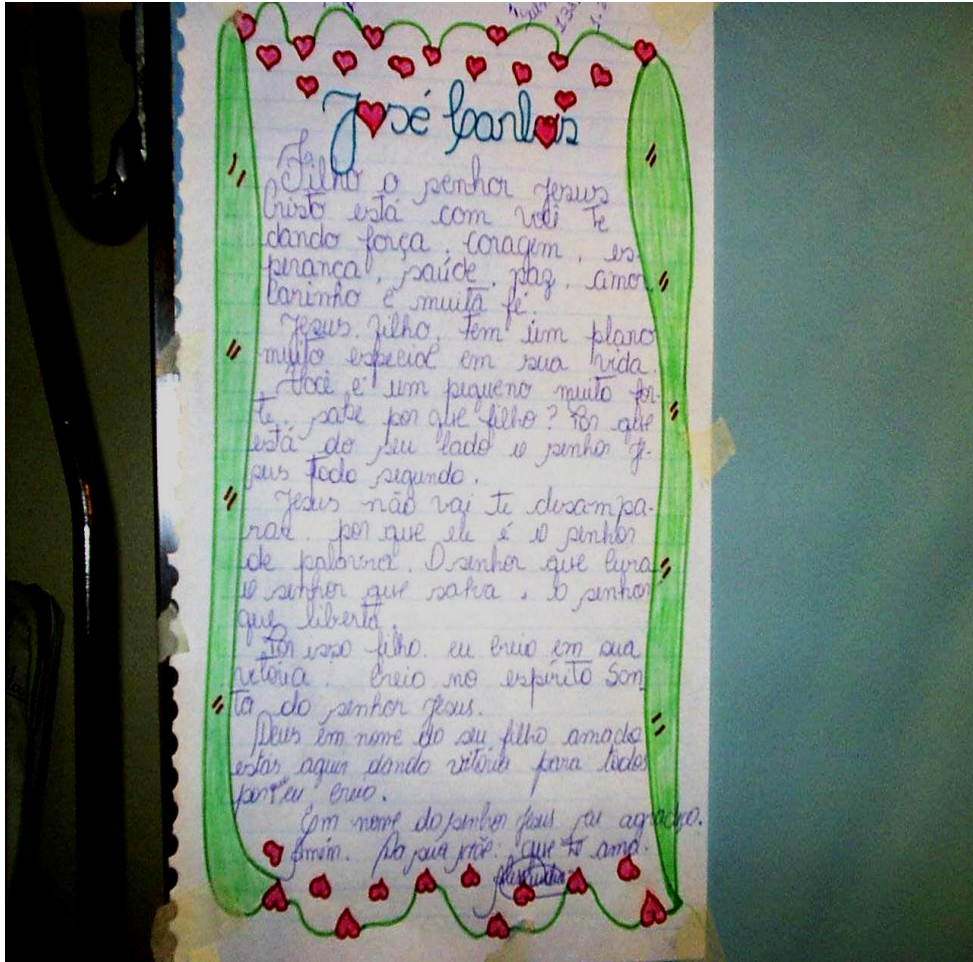 José Carlos
Filho o senhor Jesus
Cristo está com você te
dando força, coragem, es-
perança, saúde, paz, amor
Carinho e muita fé.
Jesus, filho, tem um plano
muito especial em sua vida.
Você é um pequeno muito for-
te, sabe por que filho? Por que
está do seu lado o senhor Je-
sus todo segundo.
Jesus não vai te desampa-
rar, por que ele é o senhor
de palavra. O senhor que livra
o senhor que salva, o senhor
que liberta.
Por isso filho, eu creio em sua
vitória. Creio no espírito San
to do senhor Jesus.
Deus em nome do seu filho amado
estas aqui dando vitória para todos
eu creio.
Em nome do senhor Jesus eu agradeço.
Amém. Da sua mãe, que te ama.